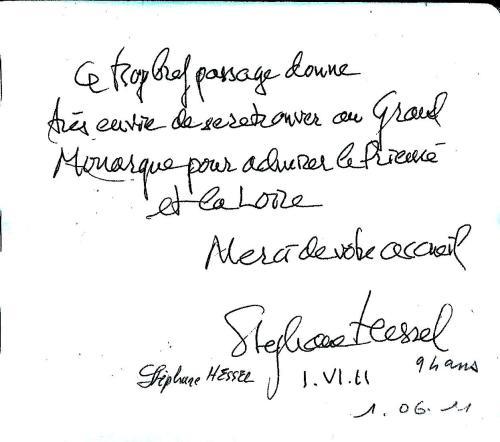 Ce trop bref passage donne
très envie de se retrouver au Grand
Monarque pour admirer le Prieuré
et la Loire
Merci de votre accueil
Stéphane Hessel
Stéphane HESSEL 1.VI.11 94 ans
1.06.11